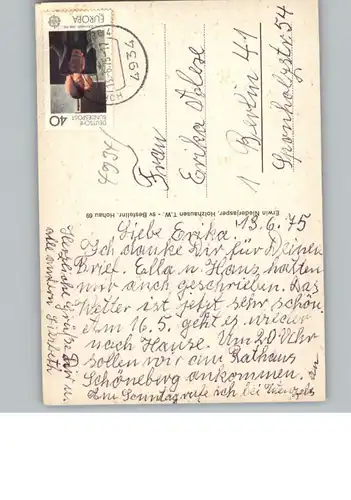 EUROPA
DEUTSCHE
BUNDESPOST
40
4934
4934
Frau
Erika
1 Berlin 41
Sponholzstr. 54
Erwin Niederjasper, Holzhausen T.W. · sv Bestellnr. Hohau 68
13.6.75
Liebe Erika
Ich danke Dir für Deinen
Brief. Ella u Hans hatten
mir auch geschrieben. Das
Wetter ist jetzt sehr schön
Am 16.5. geht es wieder
nach Hause. Um 20 Uhr
sollen wir am Rathaus
Schöneberg ankommen.
Am Sonntag rufe ich bei Wenzels an
Herzliche Grüße Dir u
alle andern